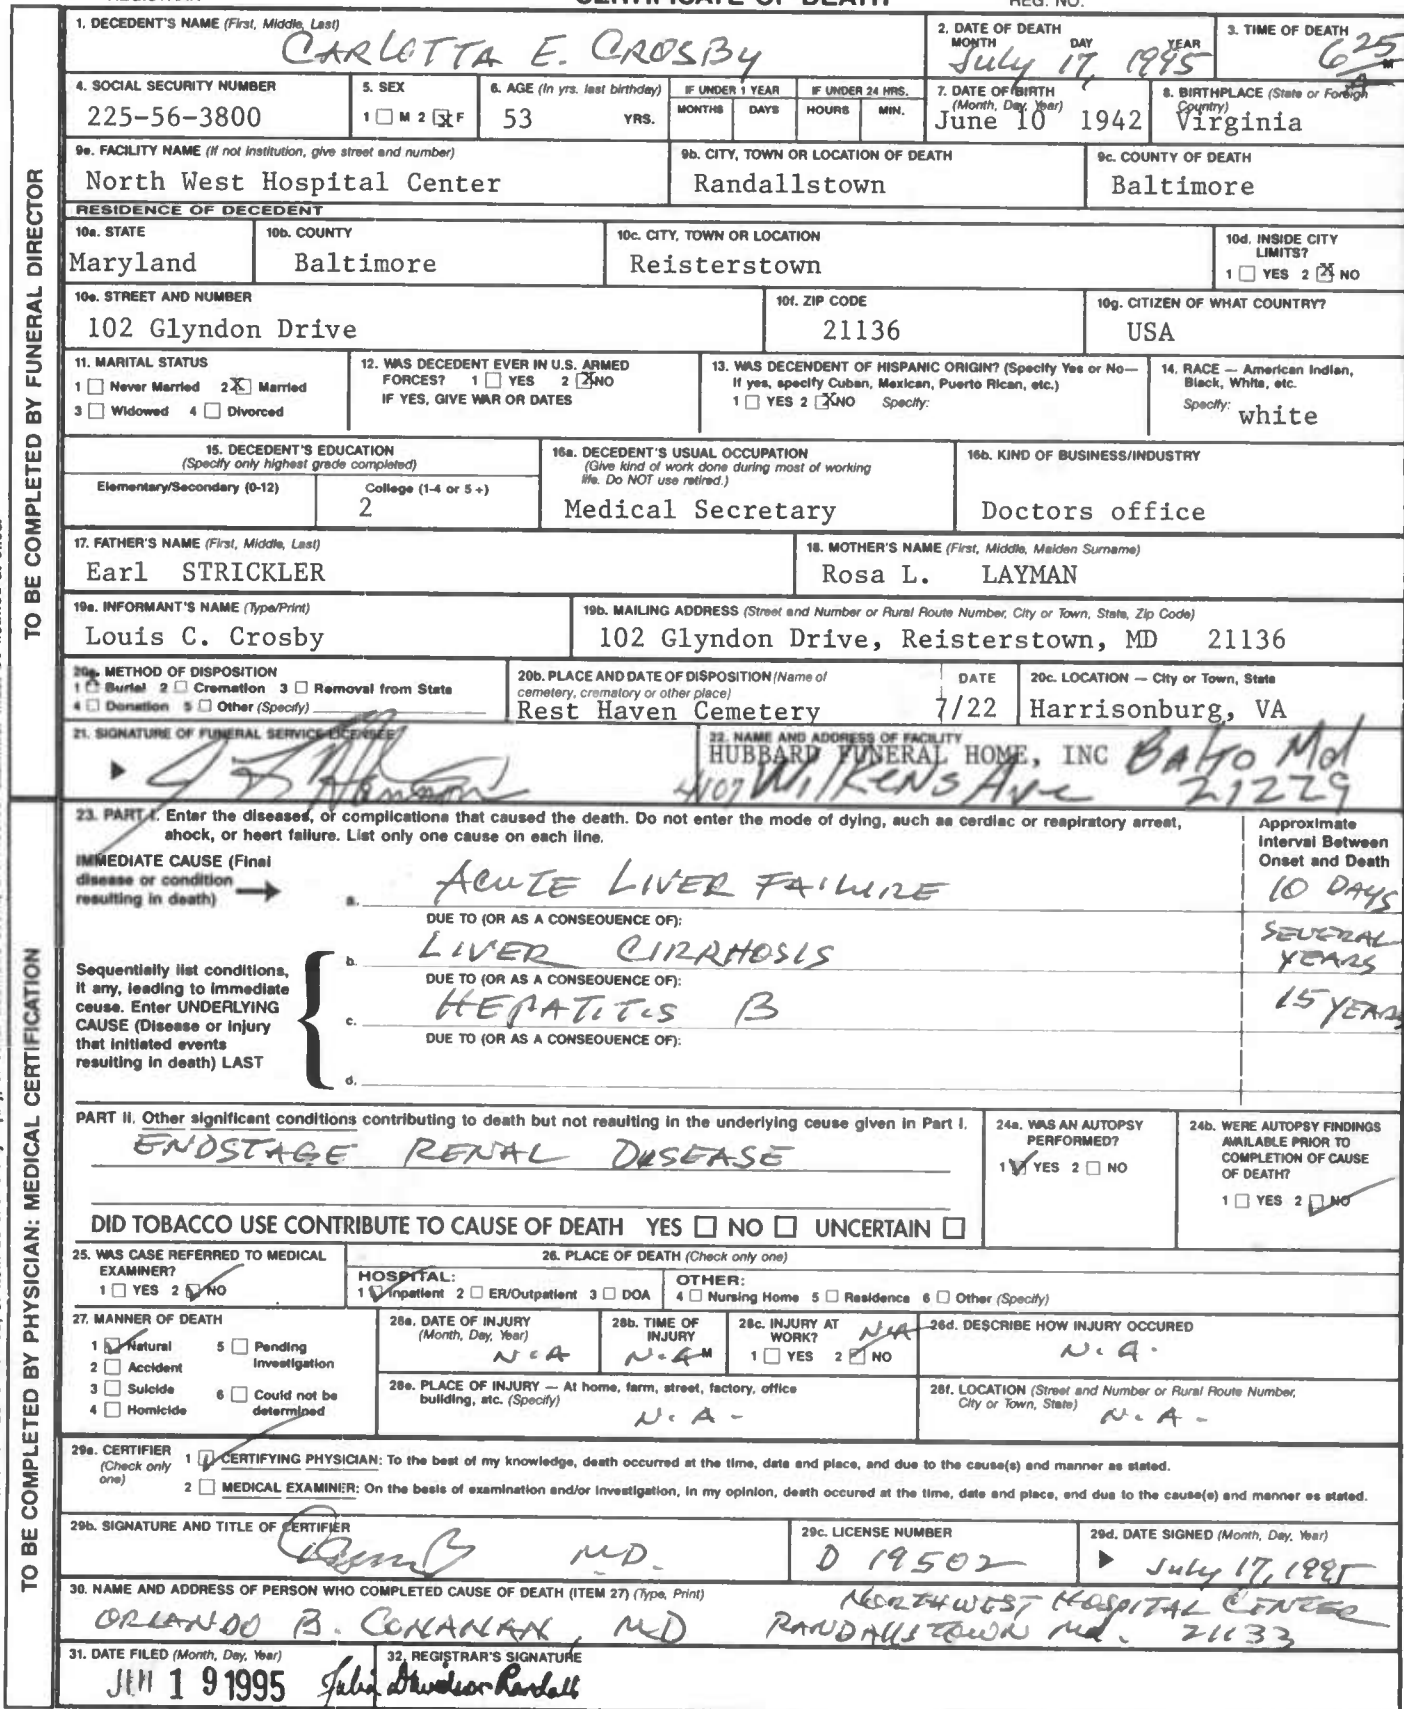 CERTIFICATE OF DEATH
REG. NO.
TO BE COMPLETED BY FUNERAL DIRECTOR
1. DECEDENT'S NAME (First, Middle, Last)
CARLOTTA E. CROSBY
2. DATE OF DEATH
MONTH DAY YEAR
July 17, 1995
3. TIME OF DEATH
6 25 A M
4. SOCIAL SECURITY NUMBER
225-56-3800
5. SEX
1 ☐ M 2 ☒ F
6. AGE (In yrs. last birthday)
53 YRS.
IF UNDER 1 YEAR
MONTHS DAYS
IF UNDER 24 HRS.
HOURS MIN.
7. DATE OF BIRTH
(Month, Day, Year)
June 10 1942
8. BIRTHPLACE (State or Foreign
Country)
Virginia
9a. FACILITY NAME (If not institution, give street and number)
North West Hospital Center
9b. CITY, TOWN OR LOCATION OF DEATH
Randallstown
9c. COUNTY OF DEATH
Baltimore
RESIDENCE OF DECEDENT
10a. STATE
Maryland
10b. COUNTY
Baltimore
10c. CITY, TOWN OR LOCATION
Reisterstown
10d. INSIDE CITY
LIMITS?
1 ☐ YES 2 ☒ NO
10e. STREET AND NUMBER
102 Glyndon Drive
10f. ZIP CODE
21136
10g. CITIZEN OF WHAT COUNTRY?
USA
11. MARITAL STATUS
1 ☐ Never Married 2 ☒ Married
3 ☐ Widowed 4 ☐ Divorced
12. WAS DECEDENT EVER IN U.S. ARMED
FORCES? 1 ☐ YES 2 ☒ NO
IF YES, GIVE WAR OR DATES
13. WAS DECENDENT OF HISPANIC ORIGIN? (Specify Yes or No—
If yes, specify Cuban, Mexican, Puerto Rican, etc.)
1 ☐ YES 2 ☒ NO Specify:
14. RACE — American Indian,
Black, White, etc.
Specify: white
15. DECEDENT'S EDUCATION
(Specify only highest grade completed)
Elementary/Secondary (0-12)
College (1-4 or 5 +)
2
16a. DECEDENT'S USUAL OCCUPATION
(Give kind of work done during most of working
life. Do NOT use retired.)
Medical Secretary
16b. KIND OF BUSINESS/INDUSTRY
Doctors office
17. FATHER'S NAME (First, Middle, Last)
Earl STRICKLER
18. MOTHER'S NAME (First, Middle, Maiden Surname)
Rosa L. LAYMAN
19a. INFORMANT'S NAME (Type/Print)
Louis C. Crosby
19b. MAILING ADDRESS (Street and Number or Rural Route Number, City or Town, State, Zip Code)
102 Glyndon Drive, Reisterstown, MD 21136
20a. METHOD OF DISPOSITION
1 ☒ Burial 2 ☐ Cremation 3 ☐ Removal from State
4 ☐ Donation 5 ☐ Other (Specify)
20b. PLACE AND DATE OF DISPOSITION (Name of
cemetery, crematory or other place)
Rest Haven Cemetery
DATE
7/22
20c. LOCATION — City or Town, State
Harrisonburg, VA
21. SIGNATURE OF FUNERAL SERVICE LICENSEE
22. NAME AND ADDRESS OF FACILITY
HUBBARD FUNERAL HOME, INC Balto Md
4107 Wilkens Ave 21229
TO BE COMPLETED BY PHYSICIAN: MEDICAL CERTIFICATION
23. PART I. Enter the diseases, or complications that caused the death. Do not enter the mode of dying, such as cardiac or respiratory arrest,
shock, or heart failure. List only one cause on each line.
Approximate
Interval Between
Onset and Death
IMMEDIATE CAUSE (Final
disease or condition
resulting in death)
a. ACUTE LIVER FAILURE
10 DAYS
DUE TO (OR AS A CONSEQUENCE OF):
b. LIVER CIRRHOSIS
SEVERAL
YEARS
Sequentially list conditions,
if any, leading to immediate
cause. Enter UNDERLYING
CAUSE (Disease or injury
that initiated events
resulting in death) LAST
DUE TO (OR AS A CONSEQUENCE OF):
c. HEPATITIS B
15 YEARS
DUE TO (OR AS A CONSEQUENCE OF):
d.
PART II. Other significant conditions contributing to death but not resulting in the underlying cause given in Part I.
ENDSTAGE RENAL DISEASE
24a. WAS AN AUTOPSY
PERFORMED?
1 ☑ YES 2 ☐ NO
24b. WERE AUTOPSY FINDINGS
AVAILABLE PRIOR TO
COMPLETION OF CAUSE
OF DEATH?
1 ☐ YES 2 ☑ NO
DID TOBACCO USE CONTRIBUTE TO CAUSE OF DEATH YES ☐ NO ☐ UNCERTAIN ☐
25. WAS CASE REFERRED TO MEDICAL
EXAMINER?
1 ☐ YES 2 ☑ NO
26. PLACE OF DEATH (Check only one)
HOSPITAL:
1 ☑ Inpatient 2 ☐ ER/Outpatient 3 ☐ DOA
OTHER:
4 ☐ Nursing Home 5 ☐ Residence 6 ☐ Other (Specify)
27. MANNER OF DEATH
1 ☑ Natural 5 ☐ Pending
Investigation
2 ☐ Accident
3 ☐ Suicide 6 ☐ Could not be
determined
4 ☐ Homicide
28a. DATE OF INJURY
(Month, Day, Year)
N.A
28b. TIME OF
INJURY
N.A M
28c. INJURY AT
WORK? N.A
1 ☐ YES 2 ☑ NO
28d. DESCRIBE HOW INJURY OCCURED
N.A.
28e. PLACE OF INJURY — At home, farm, street, factory, office
building, etc. (Specify)
N.A-
28f. LOCATION (Street and Number or Rural Route Number,
City or Town, State)
N.A-
29a. CERTIFIER
(Check only
one)
1 ☑ CERTIFYING PHYSICIAN: To the best of my knowledge, death occurred at the time, date and place, and due to the cause(s) and manner as stated.
2 ☐ MEDICAL EXAMINER: On the basis of examination and/or investigation, in my opinion, death occured at the time, date and place, and due to the cause(s) and manner as stated.
29b. SIGNATURE AND TITLE OF CERTIFIER
M.D.
29c. LICENSE NUMBER
D 19502
29d. DATE SIGNED (Month, Day, Year)
July 17, 1995
30. NAME AND ADDRESS OF PERSON WHO COMPLETED CAUSE OF DEATH (ITEM 27) (Type, Print)
ORLANDO B. CONANAN, MD
NORTHWEST HOSPITAL CENTER
RANDALLSTOWN Md. 21133
31. DATE FILED (Month, Day, Year)
19 1995
32. REGISTRAR'S SIGNATURE
Julia Davidson-Randall